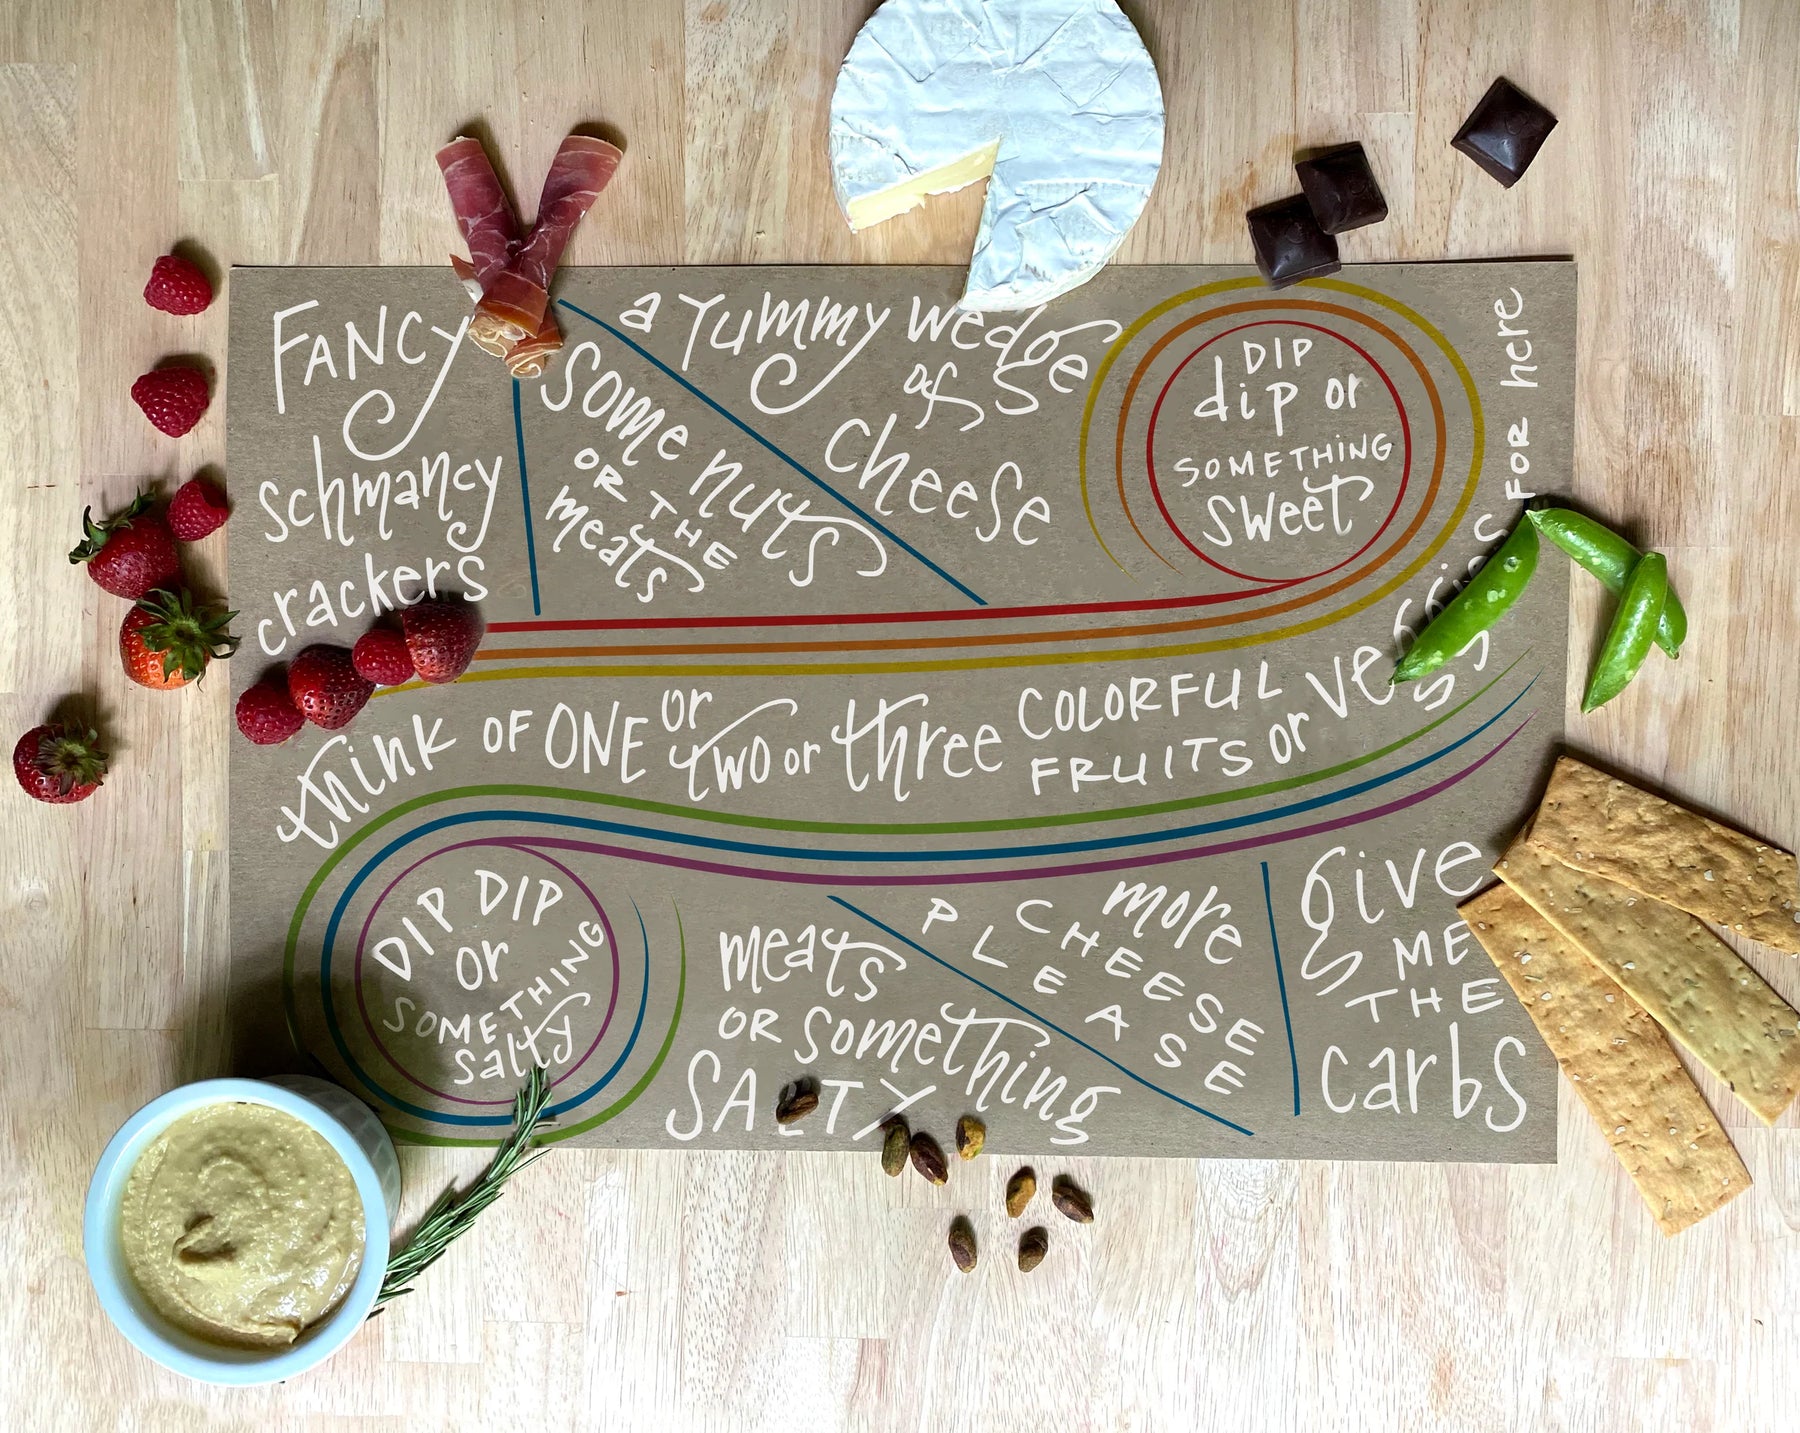 FANCY
schmancy
crackers
some nuts
OR THE
meats
a Yummy wedge
of
cheese
DIP
dip or
SOMETHING
sweet
think OF ONE or two or three COLORFUL FRUITS or veggies FOR here
DIP DIP
or
SOMETHING
salty
meats
OR something
SALTY
more
CHEESE
PLEASE
Give
ME
THE
carbs